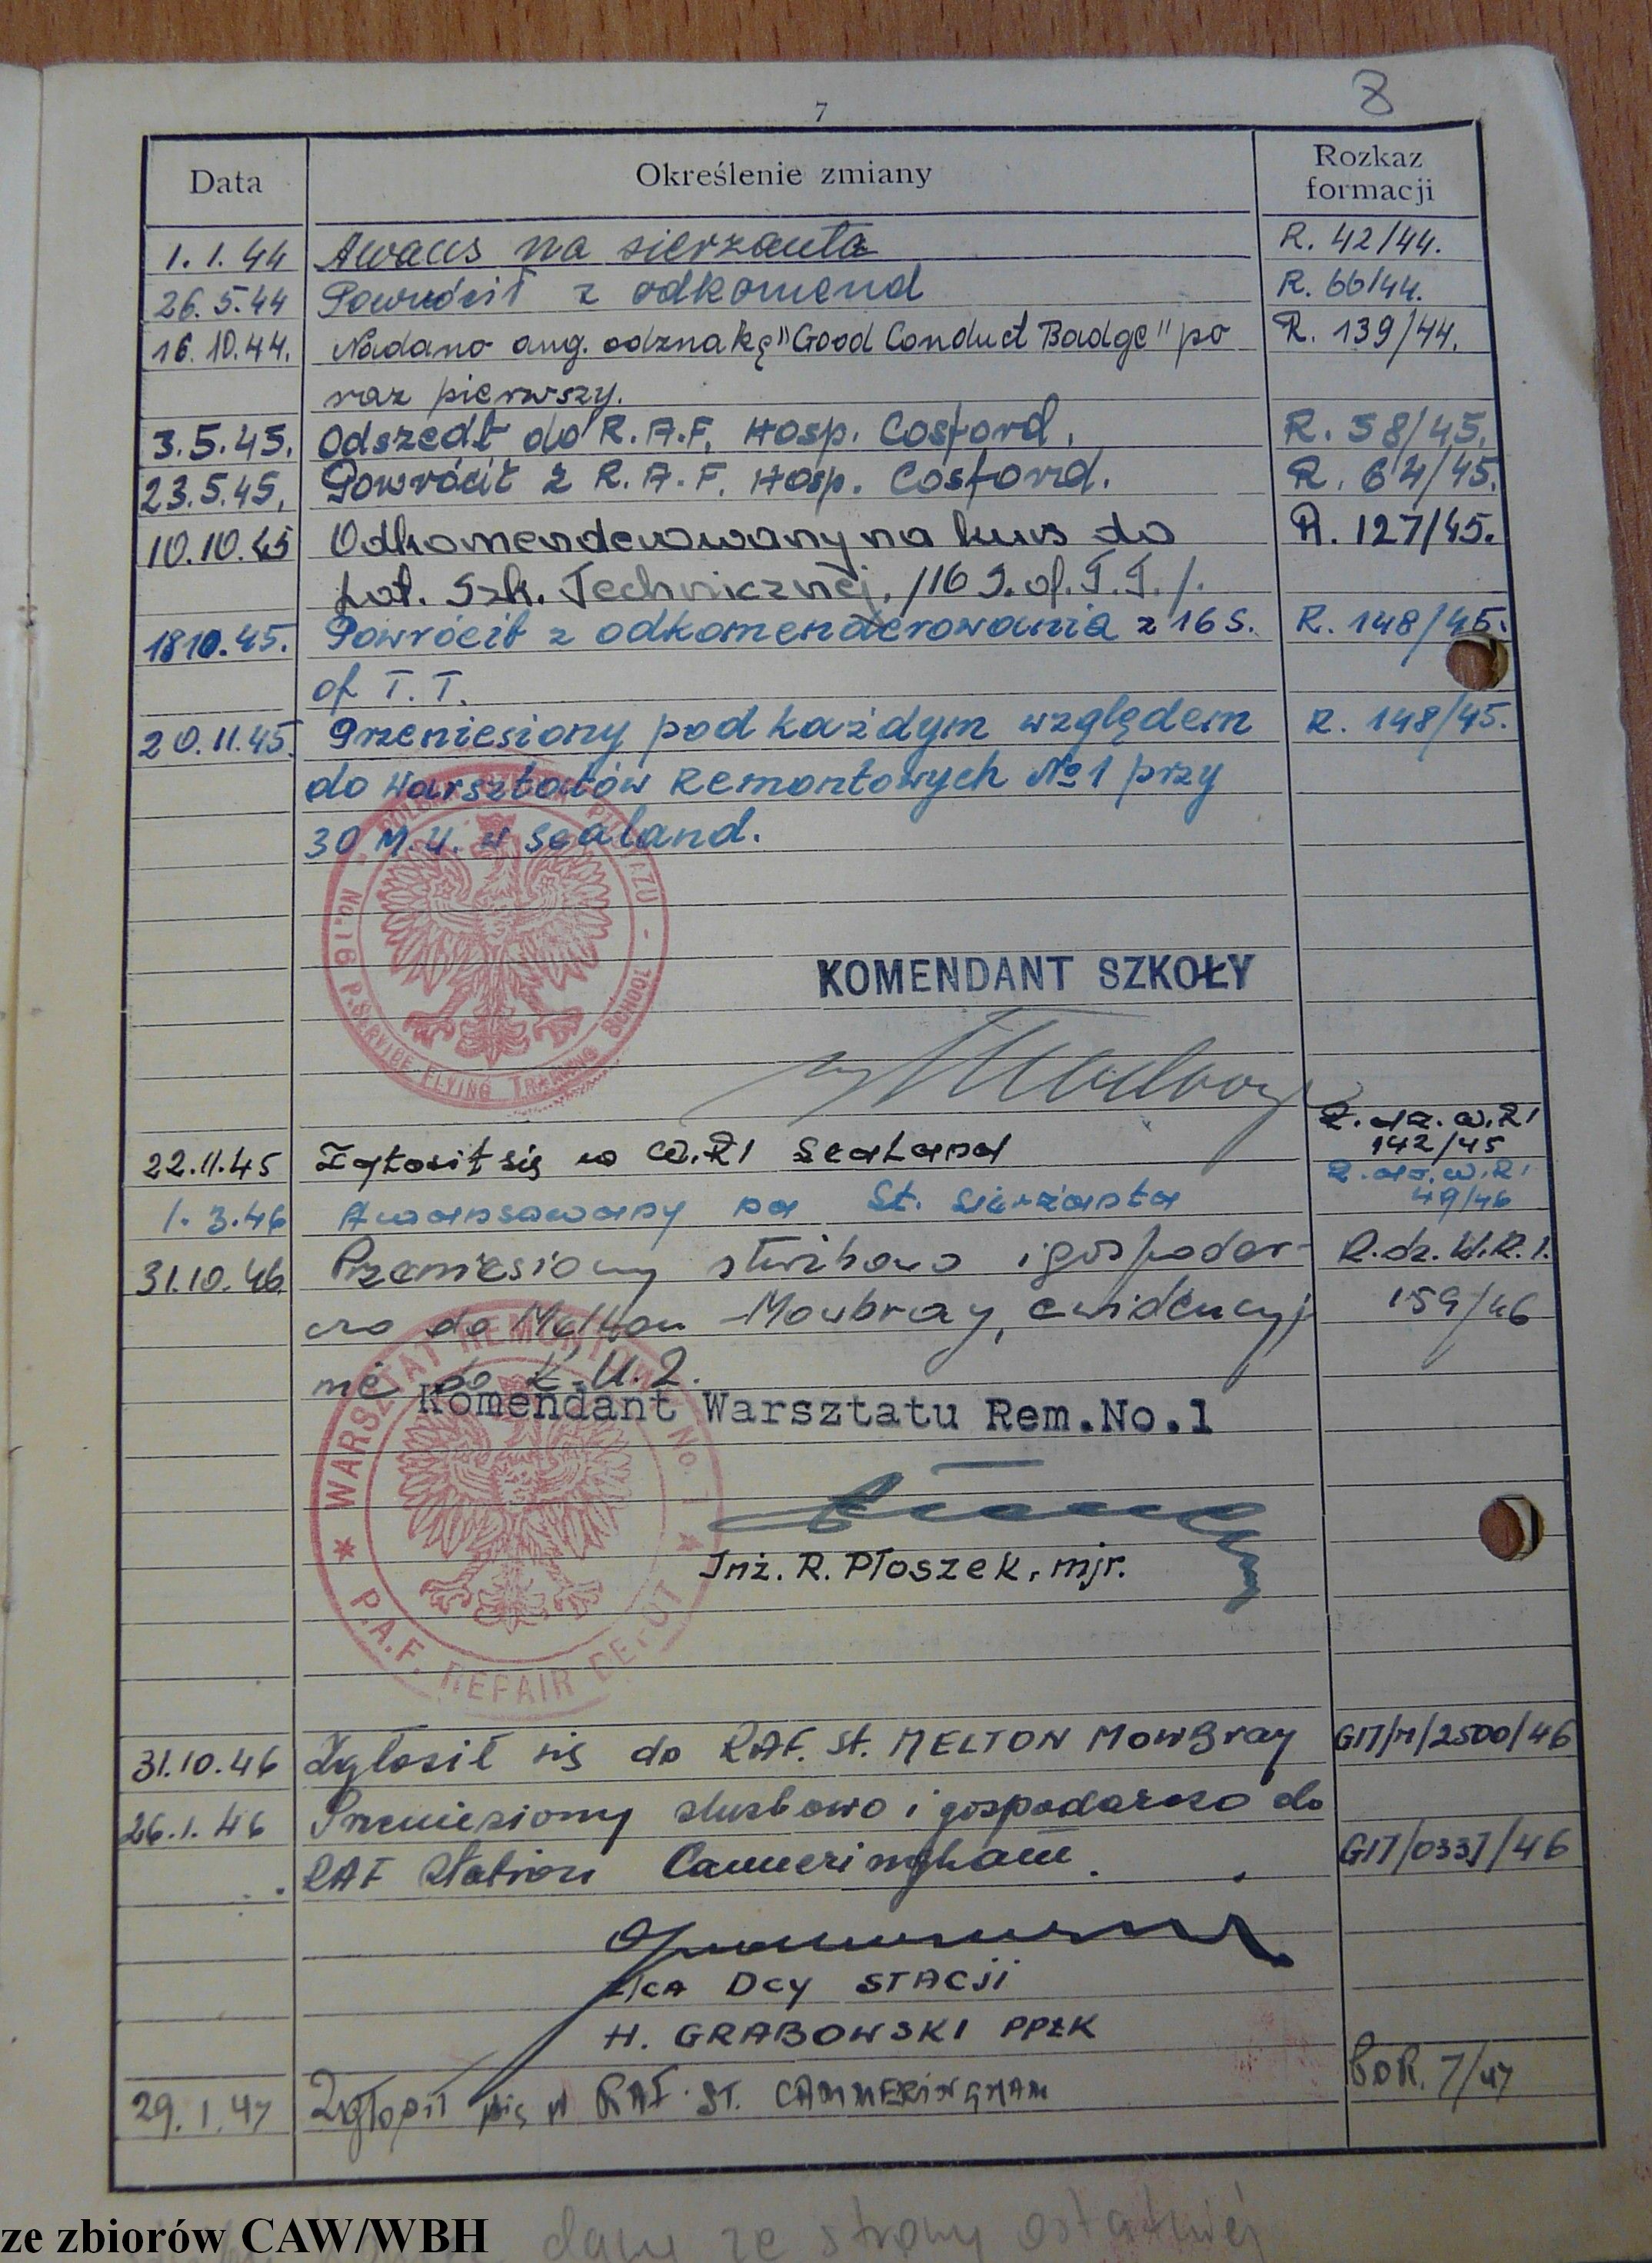 8
7
Data Określenie zmiany Rozkaz formacji
1.1.44 Awans na sierzanta R. 42/44.
26.5.44 Powrócił z odkomend R. 66/44.
16.10.44. Nadano ang. odznakę "Good Conduct Badge" po R. 139/44.
raz pierwszy.
3.5.45. Odszedł do R.A.F. Hosp. Cosford. R. 58/45.
23.5.45. Powrócił z R.A.F. Hosp. Cosford. R. 64/45.
10.10.45 Odkomenderowany na kurs do R. 127/45.
Pol. Szk. Technicznej. /16 S. of. T.T./.
1810.45. Powrócił z odkomenderowania z 16 S. R. 148/45.
of T.T.
20.11.45. Przeniesiony pod każdym względem R. 148/45.
do Warsztatów Remontowych No 1 przy
30 M.U. w Sealand.
No. 16 P. SERVICE FLYING TRAINING SCHOOL
KOMENDANT SZKOŁY
22.11.45 Zgłosił się w W.R1 Sealand R. dz. W.R1 142/45
1.3.46 Awansowany na St. Sierżanta R. dz. W.R1 49/46
31.10.46 Przeniesiony służbowo i gospodar- R.dz. W.R.1.
czo do Melton Mowbray, ewidencyj 159/46
nie do K.U.2.
Komendant Warsztatu Rem.No.1
WARSZTAT REMONTOWY No. 1
P.A.F. REPAIR DEPOT
Inż. R. Płoszek, mjr.
31.10.46 Zgłosił się do RAF. St. MELTON MOWBray G17/M/2500/46
26.1.46 Przeniesiony służbowo i gospodarczo do
RAF Station Cammeringham. G17/0337/46
Zca DCY STACJI
H. GRABOWSKI PPŁK
29.1.47 Zgłosił się w RAF. ST. CAMMERINGHAM POR. 7/47
dany ze strony ostatniej
ze zbiorów CAW/WBH